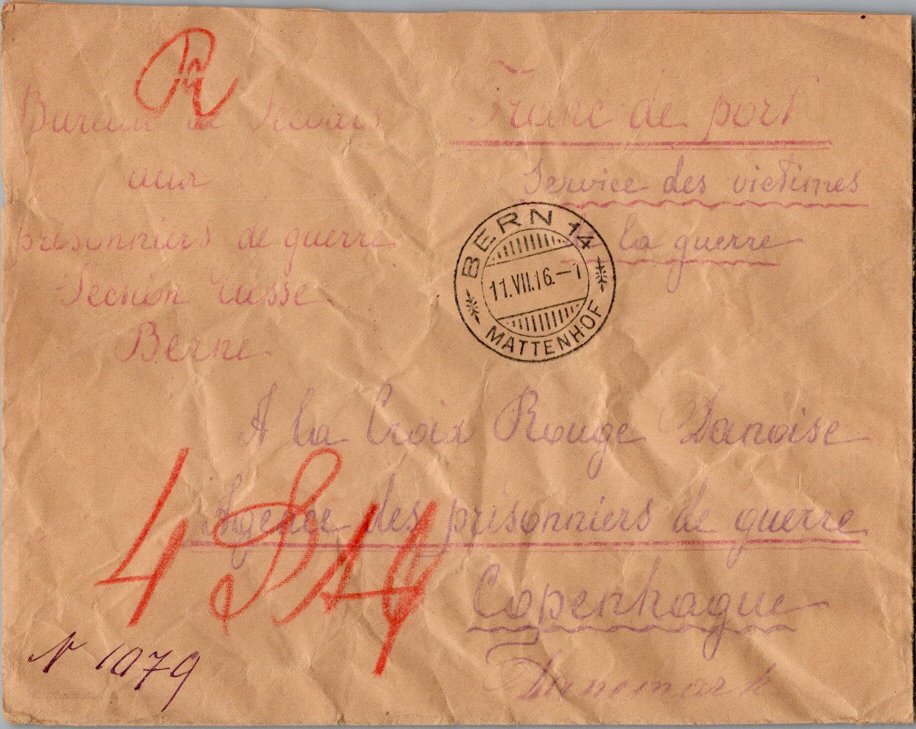 R
Bureau de Secours
aux
prisonniers de guerre
Section russe.
Berne.
Franc de port
Service des victimes
de la guerre
BERN 14
11.VII.16.–7
MATTENHOF
A la Croix Rouge Danoise
Agence des prisonniers de guerre
Copenhague
Danemark
N 1079